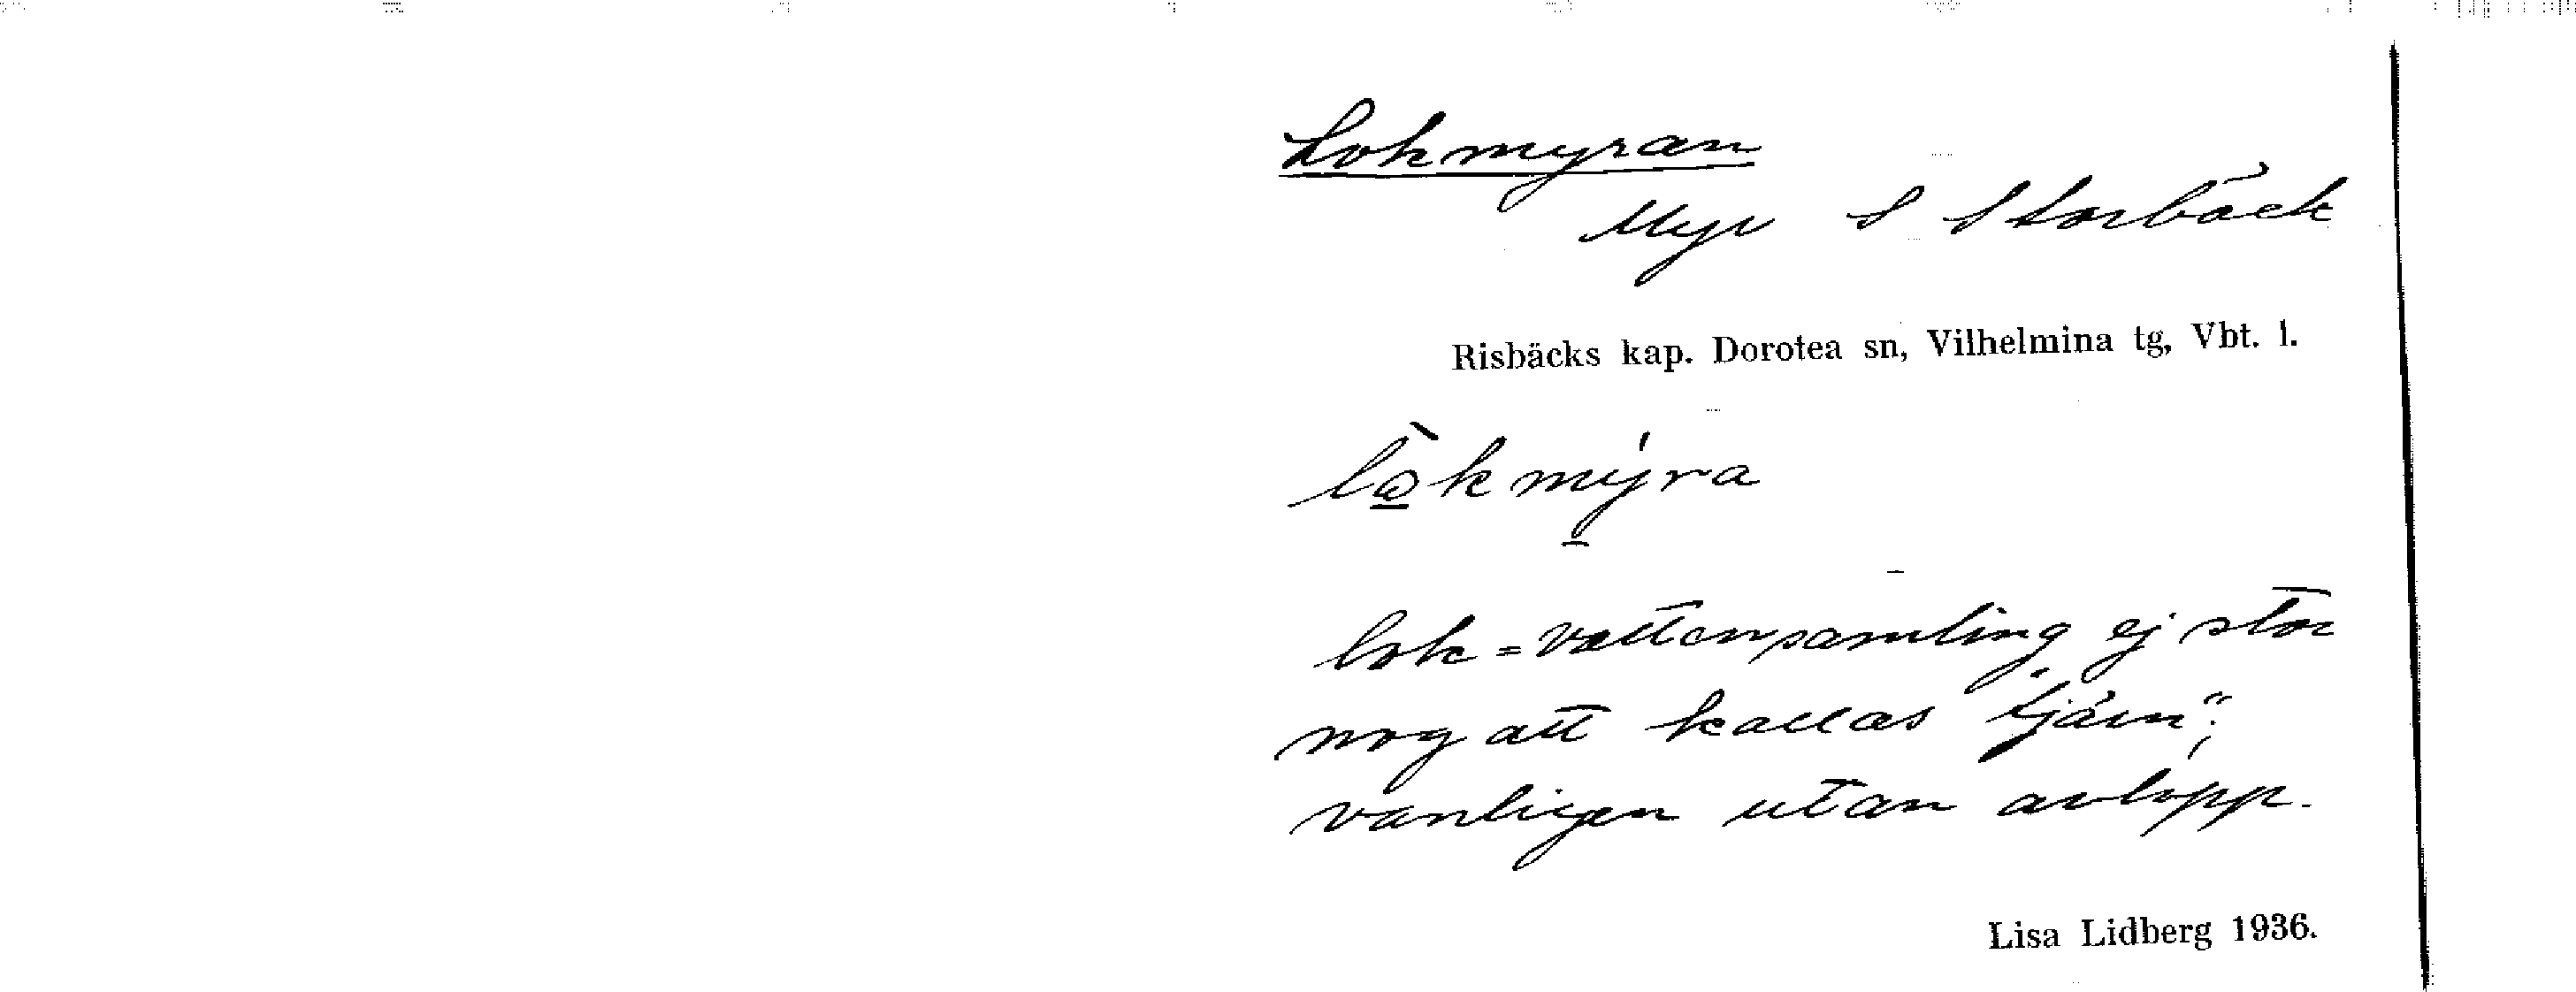 Lokmyran
Myr S Storbäck
Risbäcks kap. Dorotea sn, Vilhelmina tg, Vbt. l.
lok = vattensamling ej stor
nog att kallas "tjärn";
vanligen utan avlopp.
Lisa Lidberg 1936.